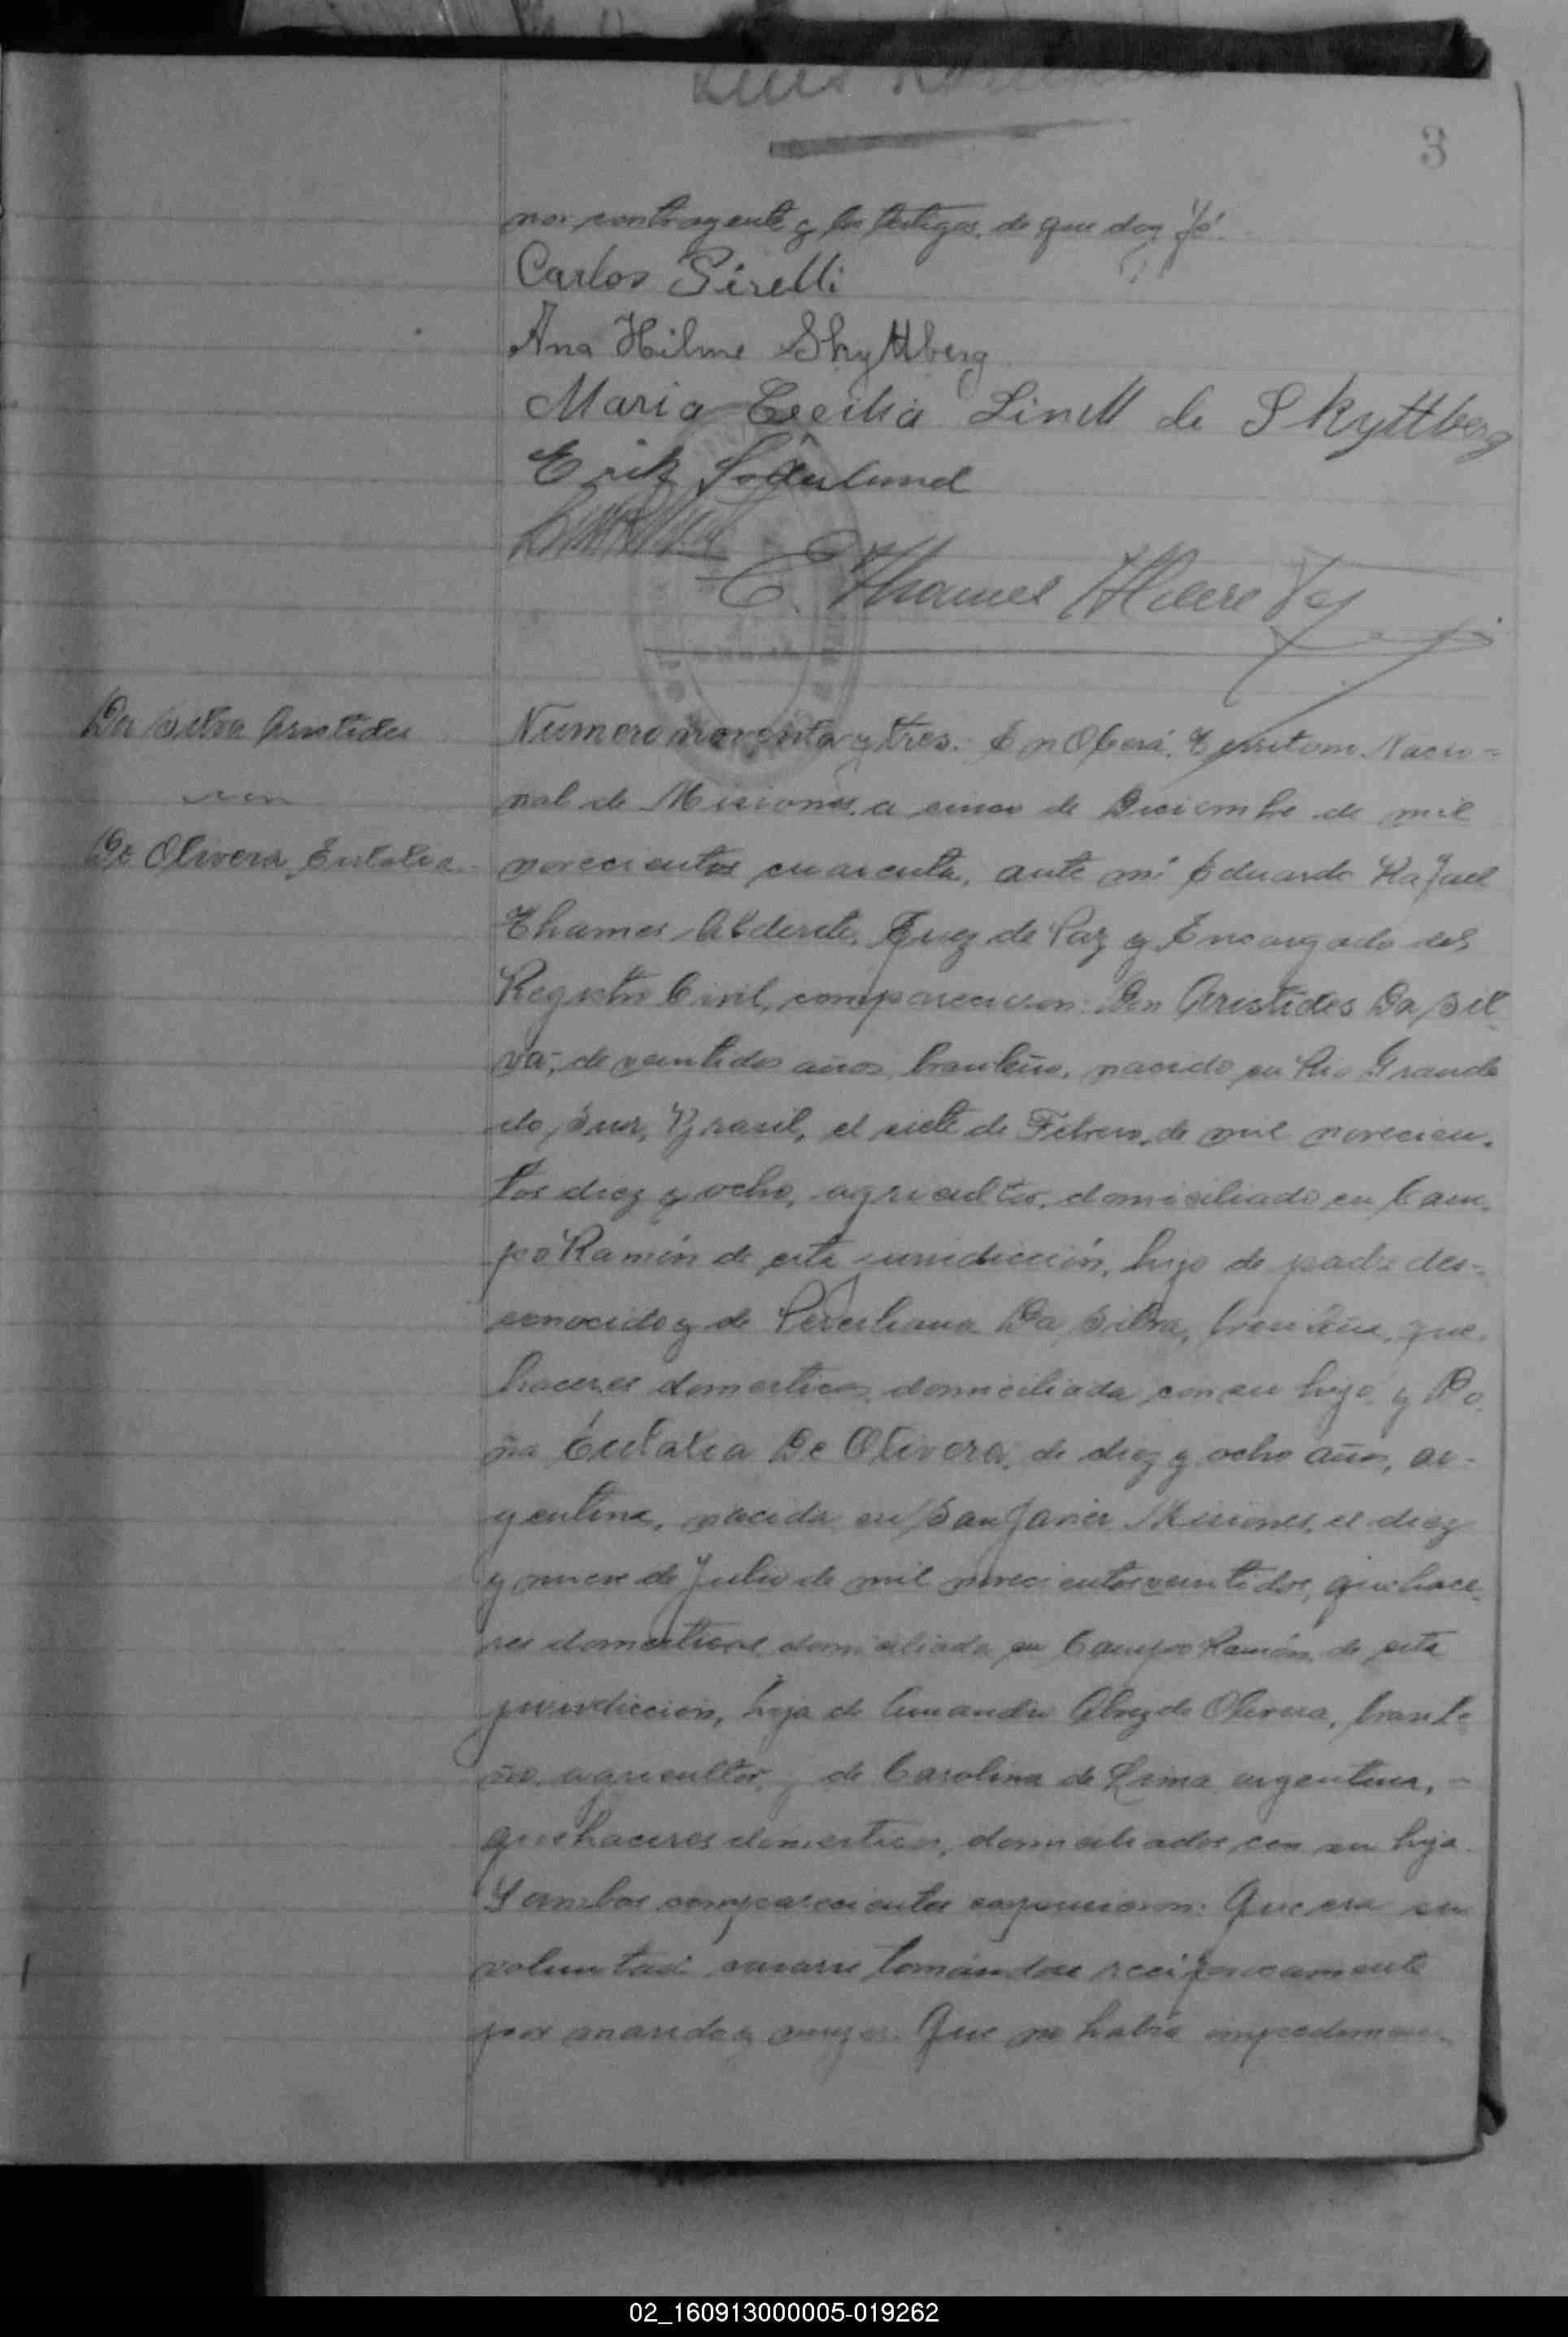 Luis
3
nor contrayente y los testigos, de que doy fé.
Carlos Pirelli
Ana Hilme Skyttberg
Maria Cecilia Linell de Skyttberg
Erik Söderlund
E. Thames Alderete
Da Silva Aristides
con
De Olivera Eulalia
Numero noventa y tres. En Oberá, Territorio Nacio-
nal de Misiones, a cinco de Diciembre de mil
novecientos cuarenta, ante mi Eduardo Rafael
Thames Alderete, Juez de Paz y Encargado del
Registro Civil, comparecieron: Don Aristides Da Sil-
va, de veintidos años, brasileño, nacido en Rio Grande
do Sur, Brasil, el siete de Febrero de mil novecien-
tos diez y ocho, agricultor, domiciliado en Cam-
po Ramón de esta jurisdicción, hijo de padre des-
conocido y de Da Silva, brasileña, que-
haceres domesticos, domiciliada con su hijo y Do-
ña Eulalia De Olivera, de diez y ocho años, ar-
gentina, nacida en San Javier, Misiones, el diez
y nueve de Julio de mil novecientos veintidos, quehace-
res domesticos, domiciliada en Campo Ramón, de esta
jurisdicción, hija de de Olivera, brasile-
ño, agricultor, y de Carolina de Lima, argentina, -
quehaceres domesticos, domiciliados con su hija.
Y ambos comparecientes expusieron: Que era su
voluntad casarse tomándose reciprocamente
por marido y mujer. Que no había impedimen-
02_160913000005-019262